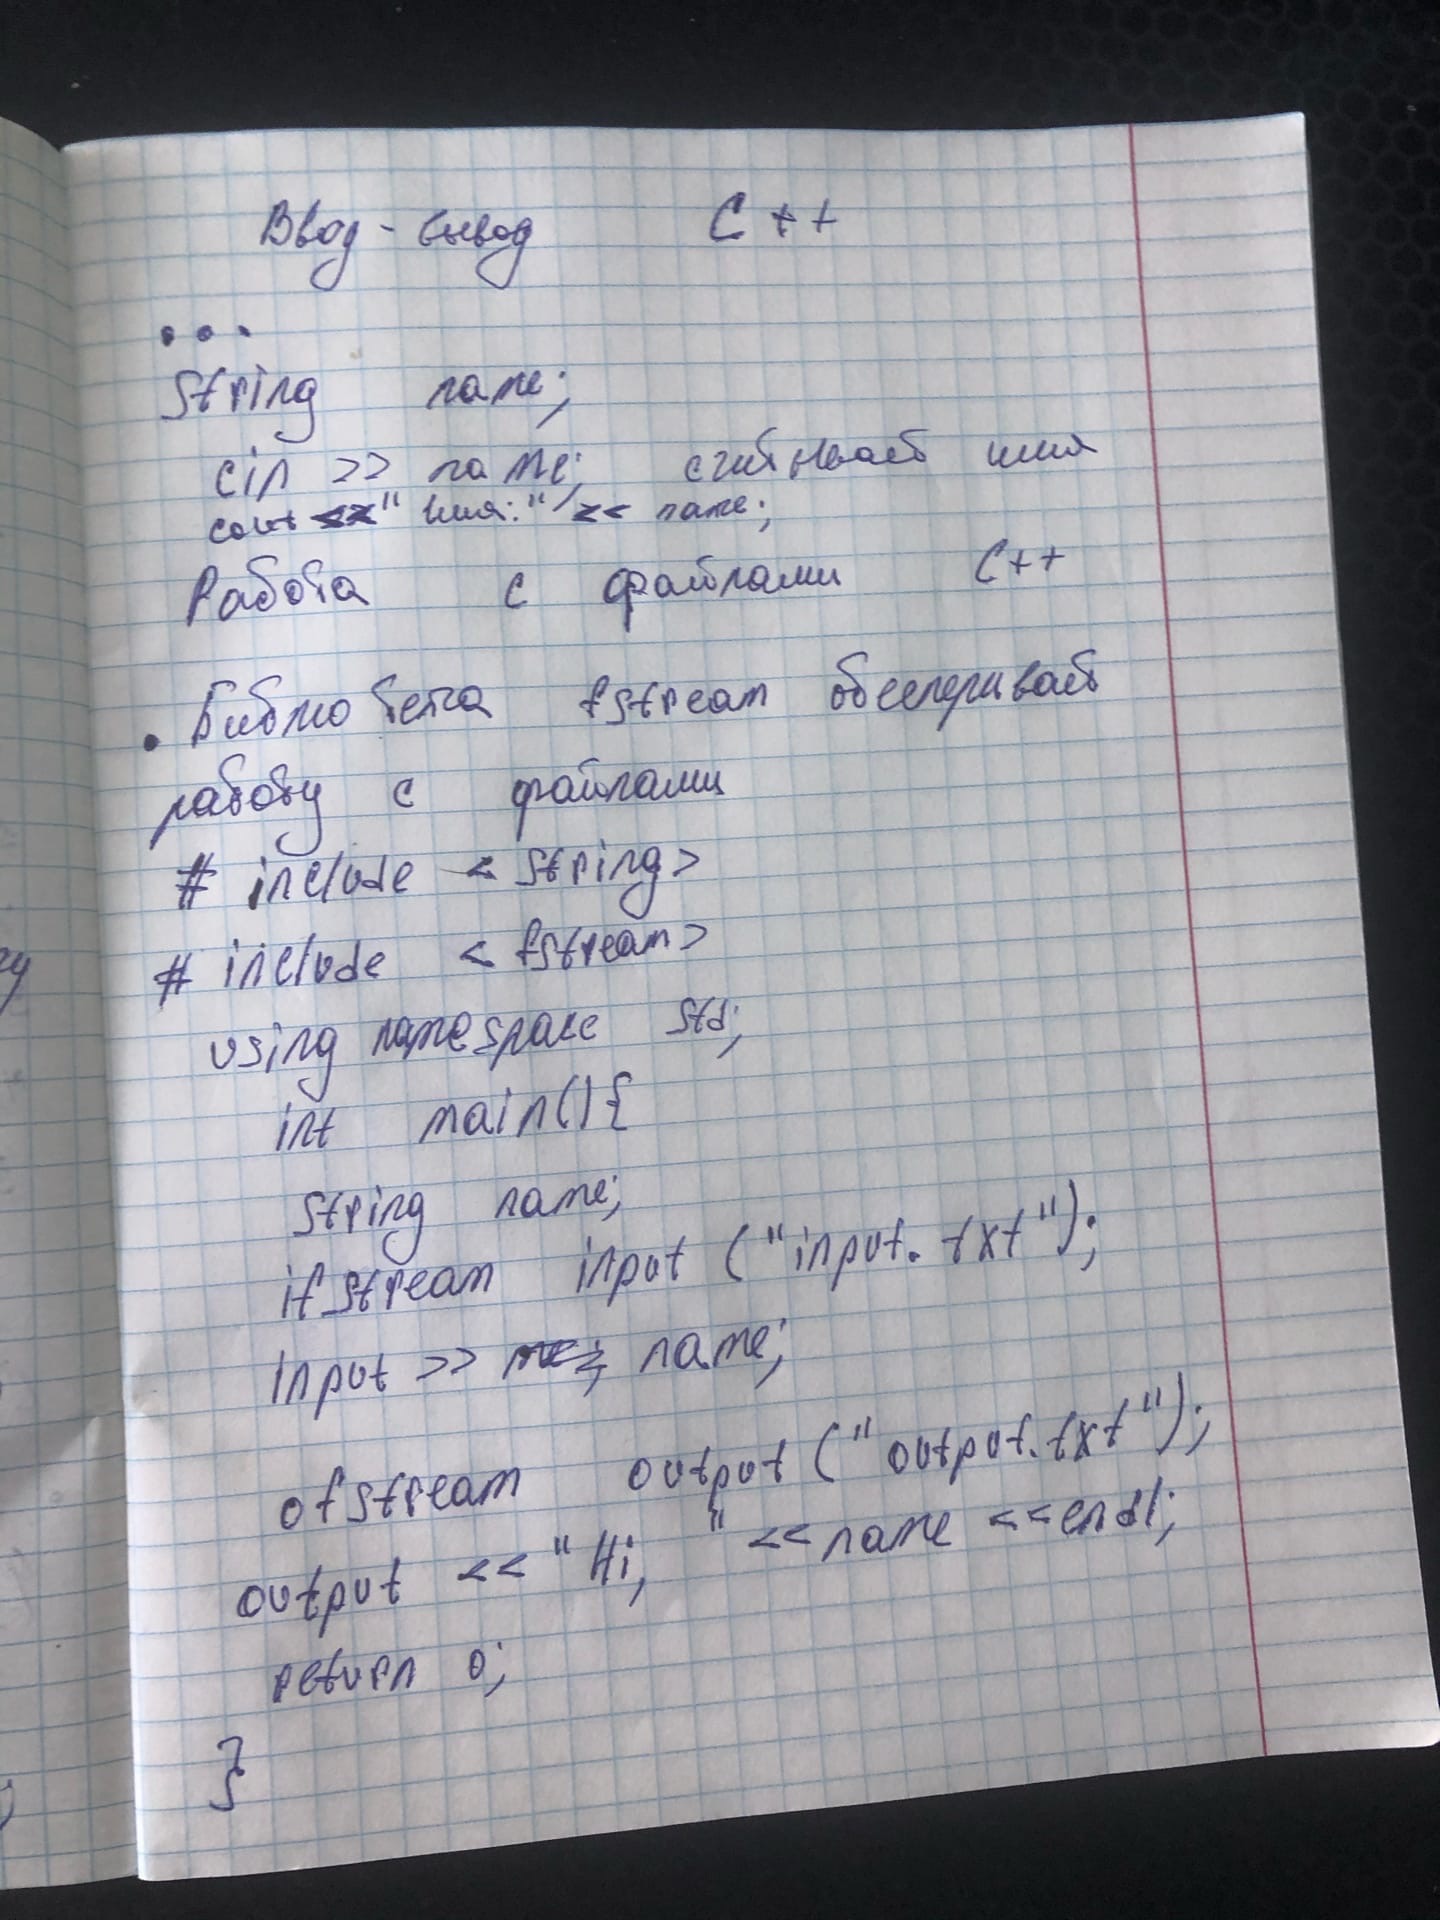 Ввод - вывод C++
...
String name;
cin >> name; считывает имя
cout << "Имя:" << name;
Работа с файлами C++
• Библиотека fstream обеспечивает
работу с файлами
# include < string >
# include < fstream >
using namespace std;
int main(){
string name;
ifstream input ("input.txt");
input >> name;
ofstream output ("output.txt");
output << "Hi, " << name << endl;
return 0;
}